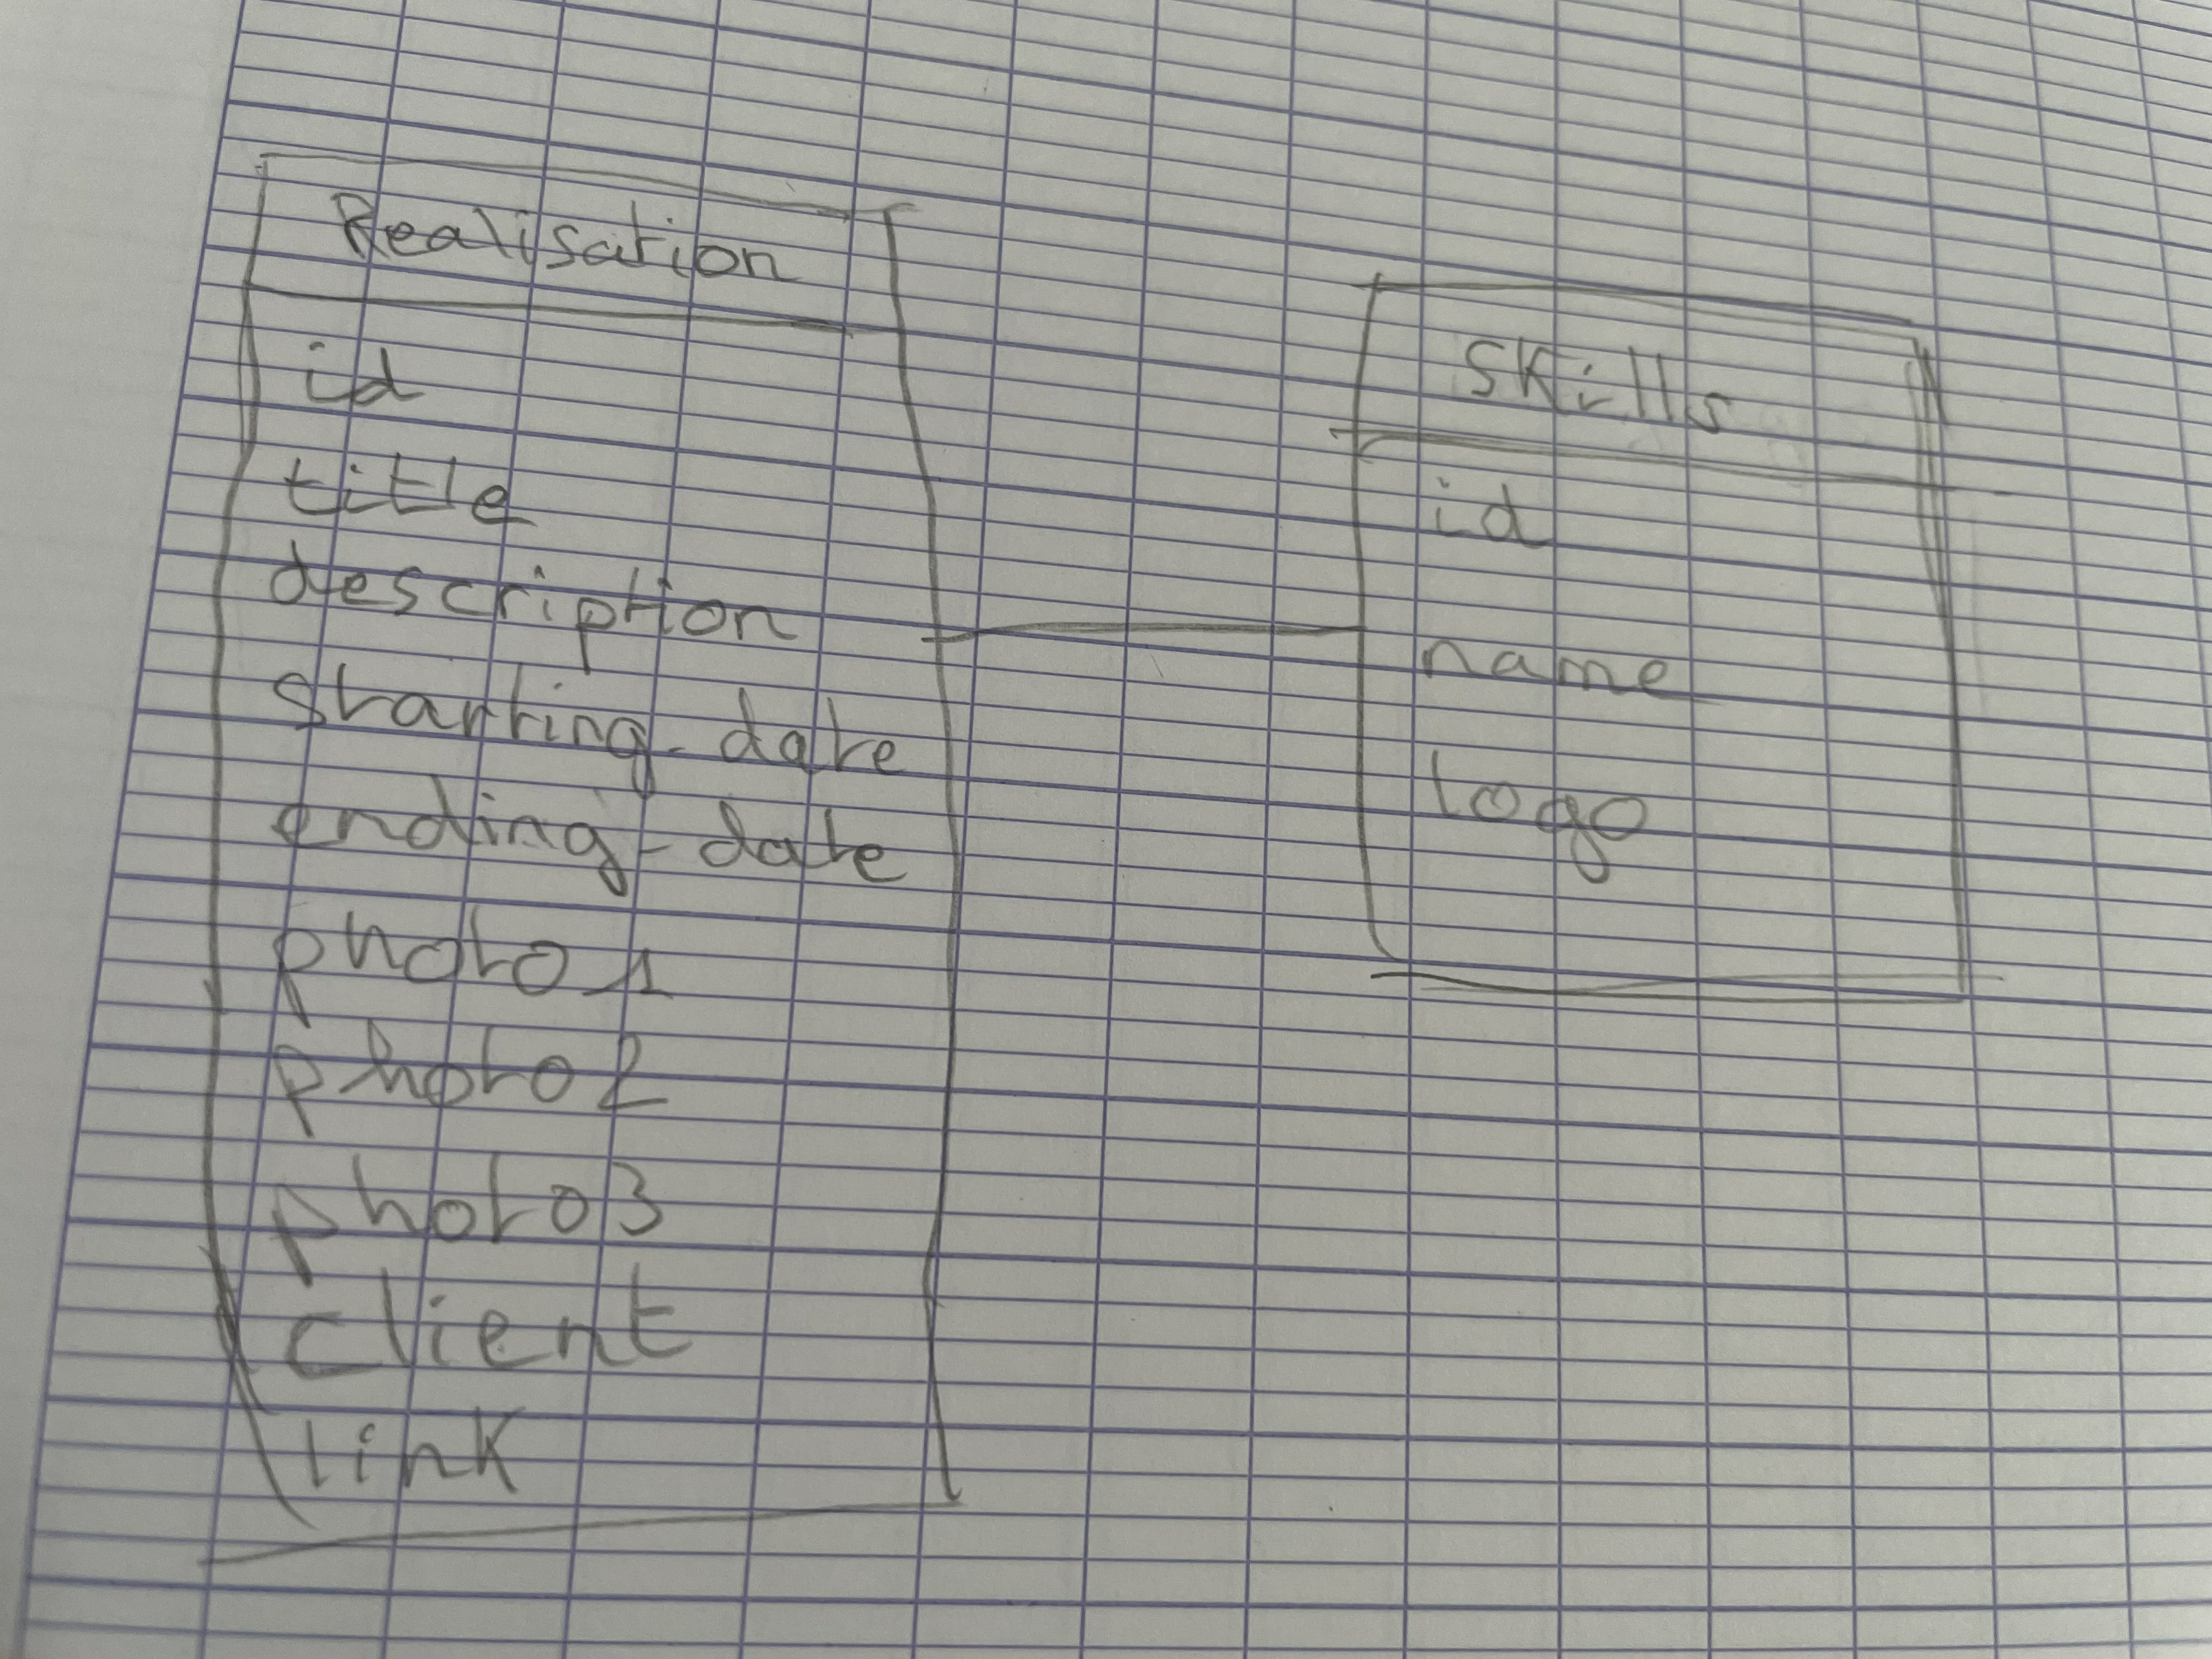 Realisation
id
title
description
starting-date
ending-date
photo1
photo2
photo3
client
link
Skills
id
name
logo